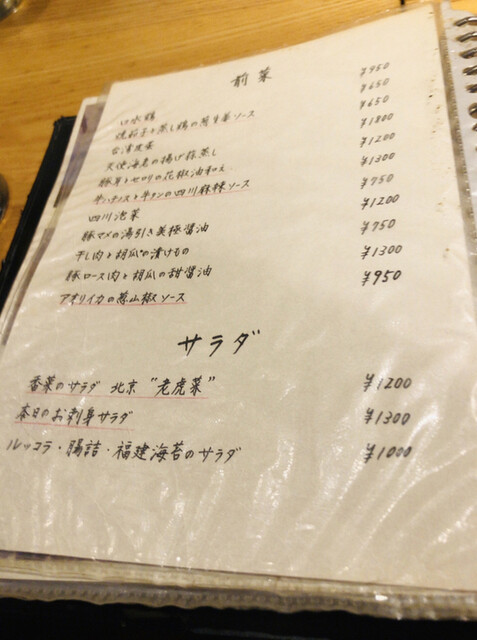 前菜
口水鶏 ¥950
焼茄子と蒸し鶏の葱生姜ソース ¥650
台湾皮蛋 ¥650
天使海老の揚げ蒜蒸し
豚耳とセロリの花椒油和え ¥1200
牛ハチノスと牛タンの四川麻辣ソース ¥1300
四川泡菜 ¥750
豚マメの湯引き美極醤油 ¥1200
干し肉と胡瓜の漬けもの ¥750
豚ロース肉と胡瓜の甜醤油 ¥1300
アオリイカの葱山椒ソース ¥950
サラダ
香菜のサラダ 北京 "老虎菜" ¥1200
本日のお刺身サラダ ¥1300
ルッコラ・腸詰・福建海苔のサラダ ¥1000